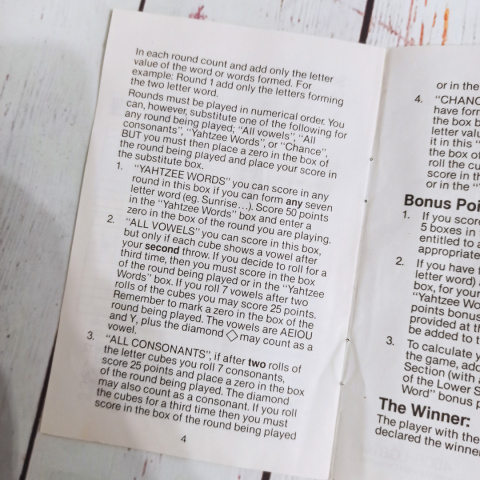 In each round count and add only the letter
value of the word or words formed. For
example: Round 1 add only the letters forming
the two letter word.
Rounds must be played in numerical order. You
can, however, substitute one of the following for
any round being played; "All vowels", "All
consonants", "Yahtzee Words", or "Chance",
BUT you must then place a zero in the box of
the round being played and place your score in
the substitute box.
1. "YAHTZEE WORDS" you can score in any
round in this box if you can form any seven
letter word (eg. Sunrise...). Score 50 points
in the "Yahtzee Words" box and enter a
zero in the box of the round you are playing.
2. "ALL VOWELS" you can score in this box,
but only if each cube shows a vowel after
your second throw. If you decide to roll for a
third time, then you must score in the box
of the round being played or in the "Yahtzee
Words" box. If you roll 7 vowels after two
rolls of the cubes you may score 25 points.
Remember to mark a zero in the box of the
round being played. The vowels are AEIOU
and Y, plus the diamond ◇ may count as a
vowel.
3. "ALL CONSONANTS", if after two rolls of
the letter cubes you roll 7 consonants,
score 25 points and place a zero in the box
of the round being played. The diamond
may also count as a consonant. If you roll
the cubes for a third time then you must
score in the box of the round being played
4
or in the
4. "CHANC
have for
the box b
letter valu
it in this "
the box of
roll the cu
score in th
or in the "
Bonus Poi
1. If you score
5 boxes in
entitled to a
appropriate
2. If you have
letter word)
box, for your
"Yahtzee Wo
points bonus
provided at th
be added to t
3. To calculate y
the game, add
Section (with a
of the Lower S
Word" bonus p
The Winner:
The player with the
declared the winne